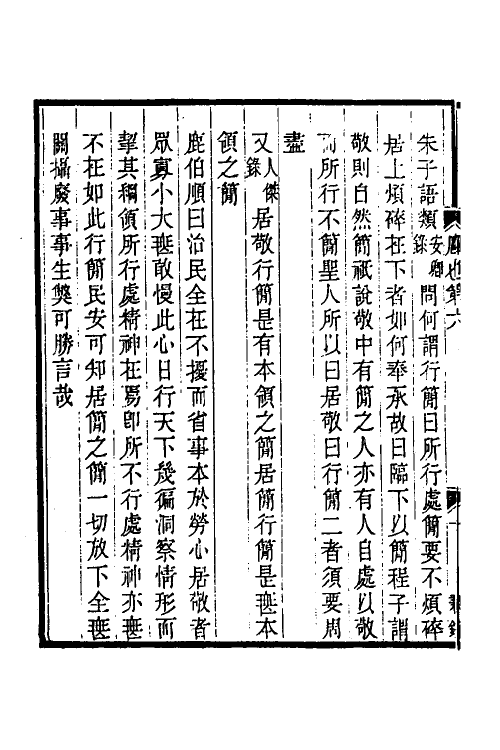 朱子語類安卿錄問何謂行簡曰所行處簡要不煩碎
居上煩碎在下者如何奉承故曰臨下以簡程子謂
敬則自然簡祇說敬中有簡之人亦有人自處以敬
而所行不簡聖人所以曰居敬曰行簡二者須要周
盡
又人傑錄居敬行簡是有本領之簡居簡行簡是無本
領之簡
鹿伯順曰治民全在不擾而省事本於勞心居敬者
眾寡小大無敢慢此心日行天下幾徧洞察情形而
挈其綱領所行處精神在焉卽所不行處精神亦無
不在如此行簡民安可知居簡之簡一切放下全無
關攝廢事事生獘可勝言哉
雍也第六